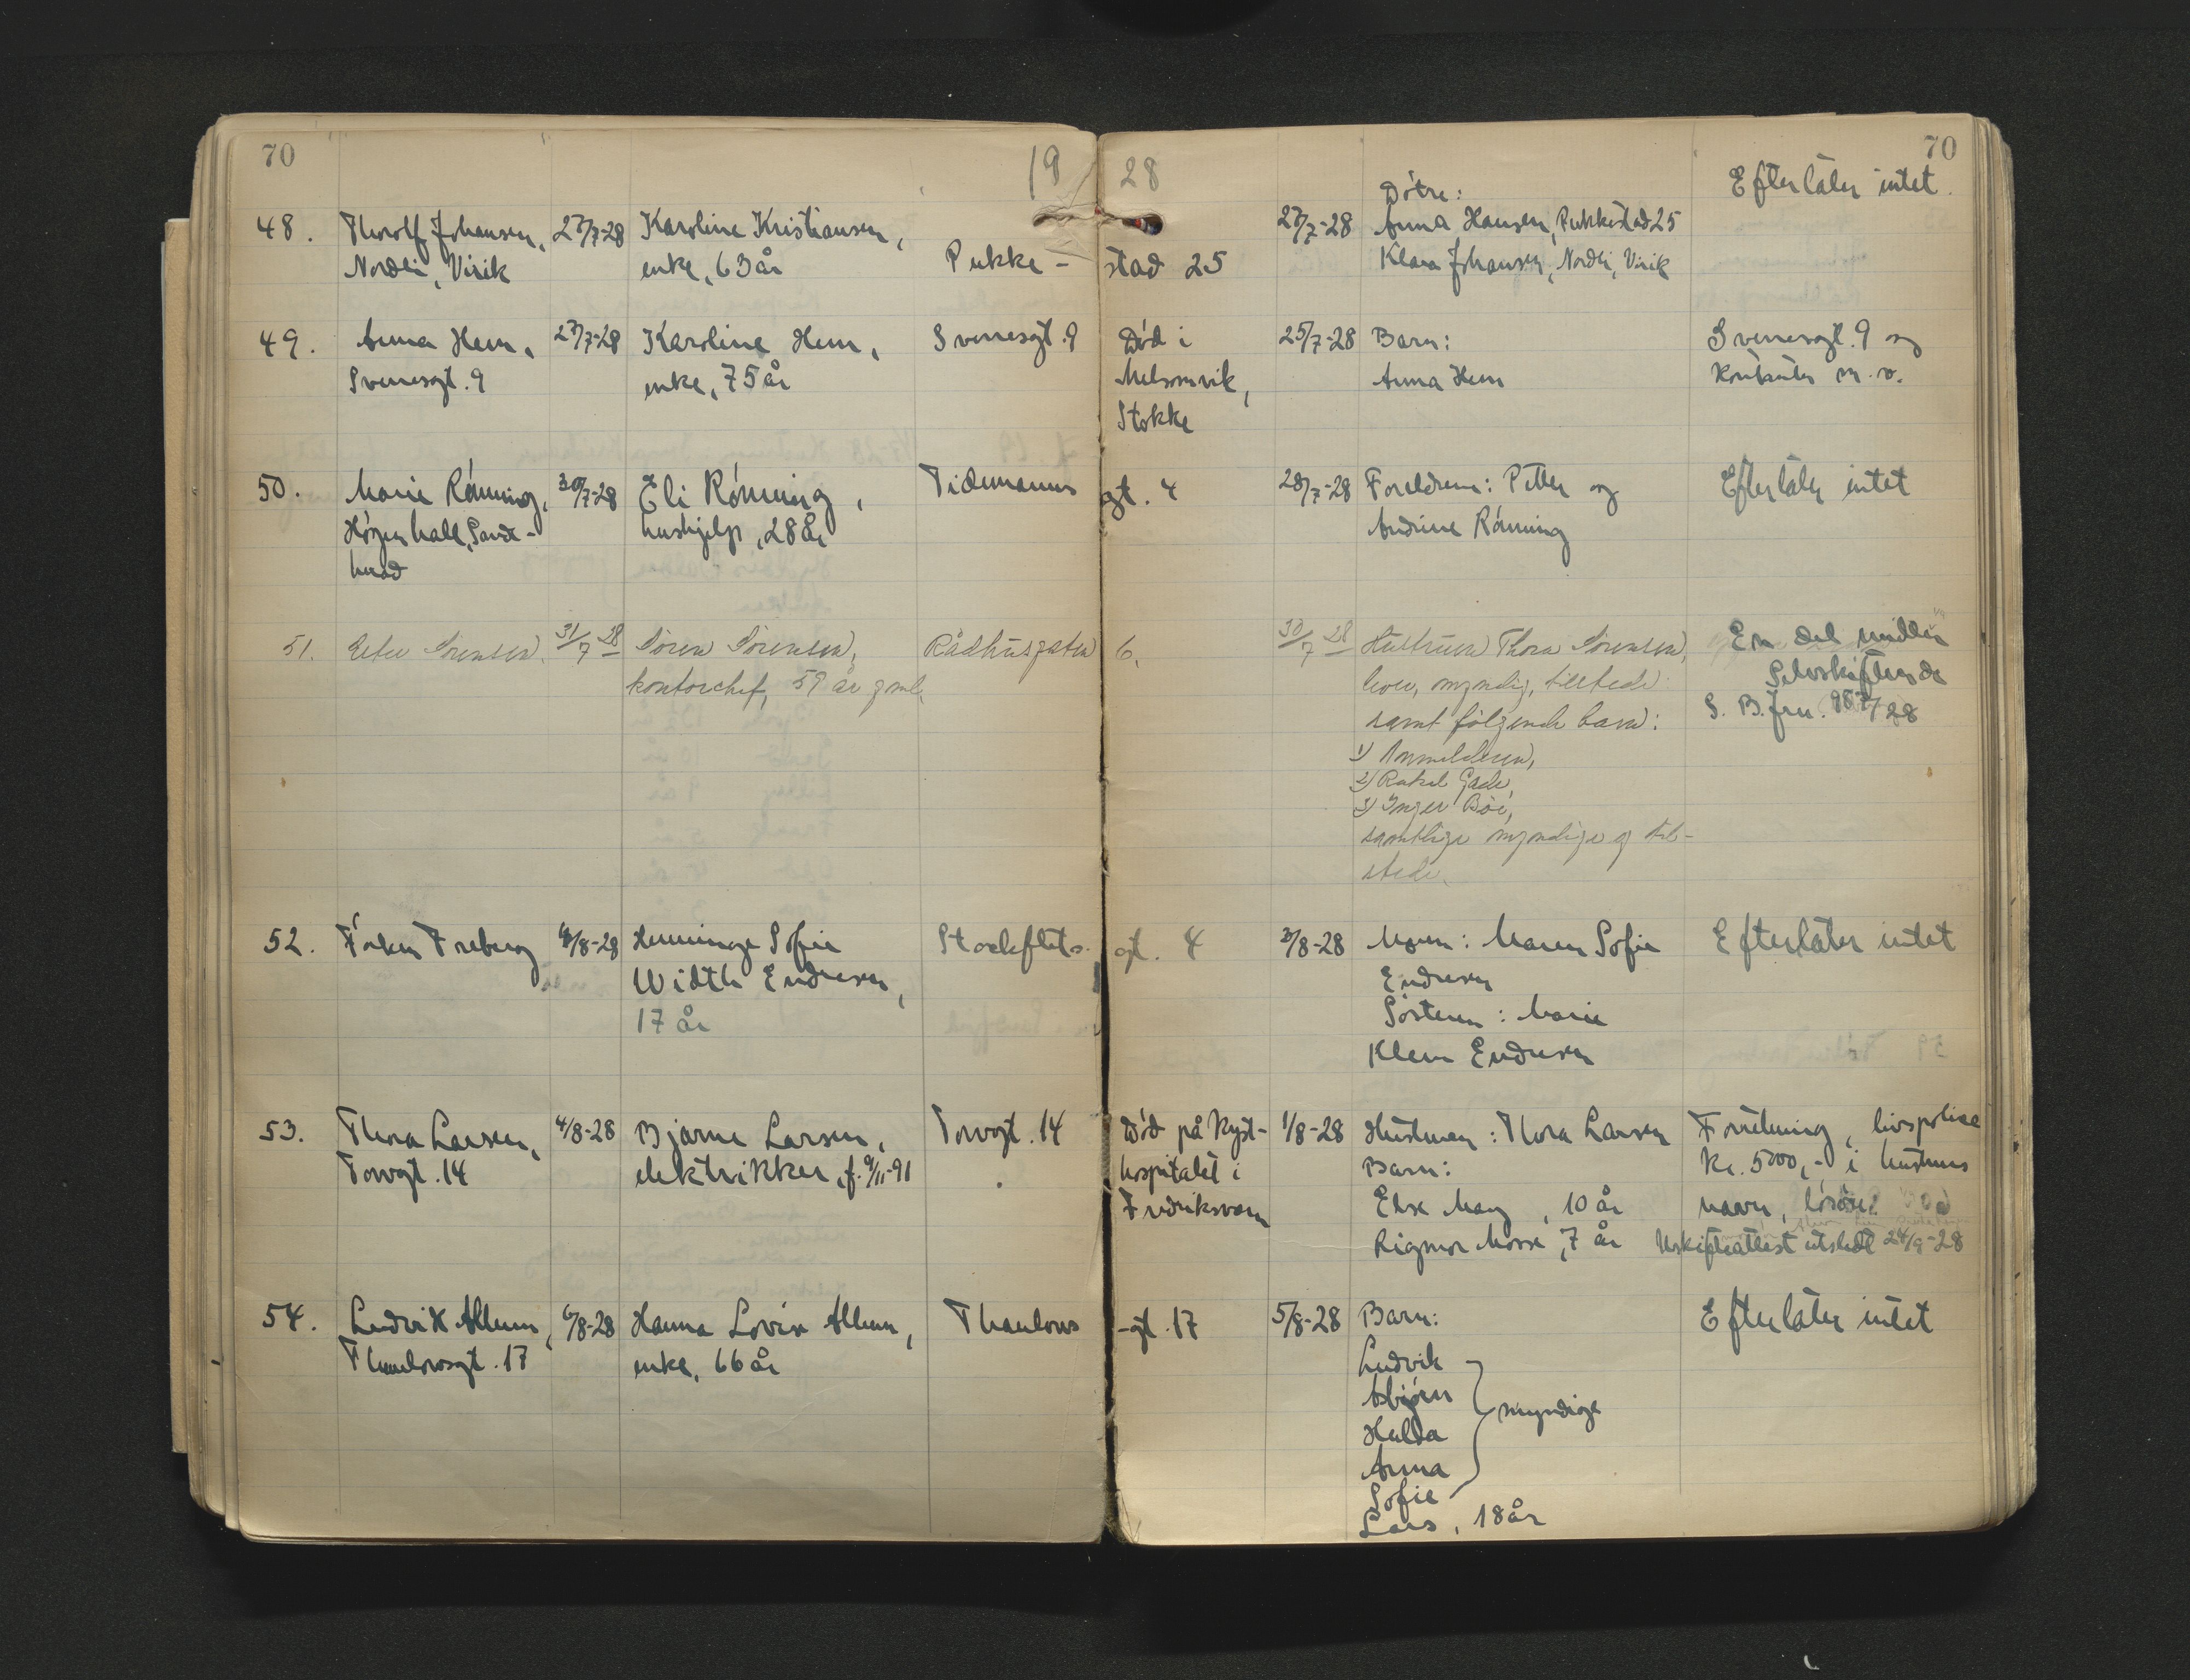 70
19 28
70
48.
Thorolf Johansen,
Nordli, Virik
27/7-28
Karoline Kristiansen,
enke, 63 år
Pukke-
stad 25
27/7-28
Døtre:
Anna Hansen, Pukkestad 25
Klara Johansen, Nordli, Virik
Efterlater intet.
49.
Anna Hem,
Sverresgt. 9
27/7-28
Karoline Hem,
enke, 75 år
Sverresgt. 9
Død i
Melsomvik,
Stokke
25/7-28
Barn:
Anna Hem
Sverresgt. 9 og
m. v.
50.
Marie Rønning,
Sande-
herad
30/7-28
Eli Rønning,
hushjelp, 28 år
Tidemanns
gt. 4
28/7-28
Foreldrene: Petter og
Andrine Rønning
Efterlater intet
51.
Peter Sørensen.
31/7 28
Søren Sørensen,
kontorchef, 59 år gml.
Rådhusgaten
6.
30/7 28
Hustruen Thora Sørensen,
lever, myndig, tilstede
samt følgende barn:
1) Anmelderen,
2) Rakel Gade,
3) Inger Bøe,
samtlige myndige og til-
stede.
En del midler
Selvskiftende
S. B. fru. 987/28
52.
Frøken Freberg
4/8-28
Henninge Sofie
Width Endresen,
17 år
Stockflets
gt. 4
3/8-28
Moren: Maren Sofie
Endresen
Søsteren: Marie
Klem Endresen
Efterlater intet
53.
Thora Larsen,
Torvgt. 14
4/8-28
Bjarne Larsen,
elektrikker, f. 9/11-91
Torvgt. 14
Død på Kyst-
hospitalet i
Fredriksvern
1/8-28
Hustruen: Thora Larsen
Barn:
Else May, 10 år
Rigmor Mosse, 7 år
Forretning, livspolise
kr. 5000,- i hustrus
navn, løsøre
Uskifteattest utstedt 24/9-28
54.
Ludvik Allum,
Thaulowsgt. 17
6/8-28
Hanna Lovise Allum,
enke, 66 år
Thaulows
-gt. 17
5/8-28
Barn:
Ludvik
Asbjørn
Hulda
Anna
Sofie
myndige
Lars, 18 år
Efterlater intet